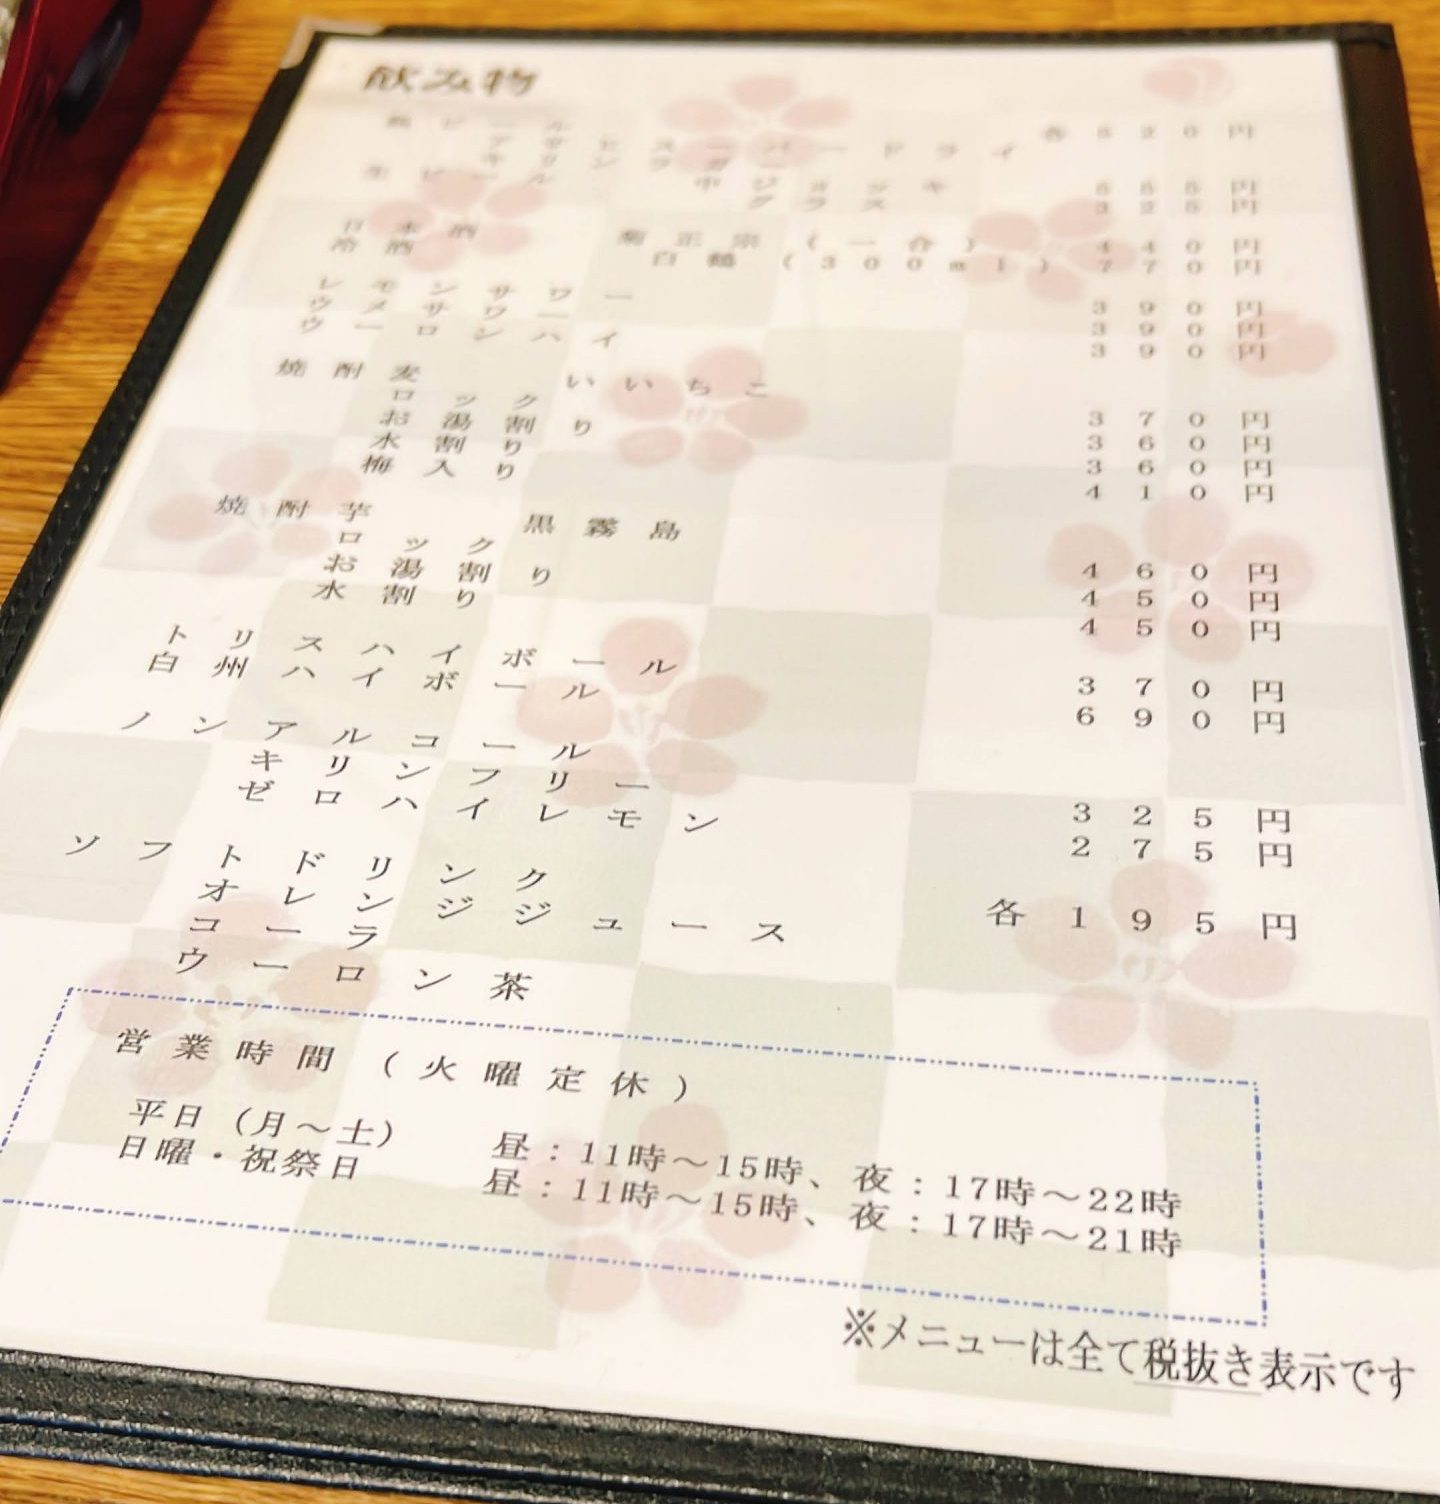 飲み物
瓶ビール 各520円
アサヒスーパードライ
キリンラガー
生ビール 中ジョッキ 555円
グラス 325円
日本酒 菊正宗(一合) 440円
冷酒 白鶴(300ml) 770円
レモンサワー 390円
ウメサワー 390円
ウーロンハイ 390円
焼酎麦 いいちこ
ロック 370円
お湯割り 360円
水割り 360円
梅入り 410円
焼酎芋 黒霧島
ロック 460円
お湯割り 450円
水割り 450円
トリスハイボール 370円
白州ハイボール 690円
ノンアルコール
キリンフリー 325円
ゼロハイレモン 275円
ソフトドリンク 各195円
オレンジジュース
コーラ
ウーロン茶
営業時間(火曜定休)
平日(月〜土) 昼:11時〜15時、夜:17時〜22時
日曜・祝祭日 昼:11時〜15時、夜:17時〜21時
※メニューは全て税抜き表示です